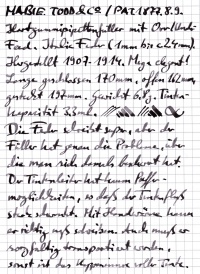 MABIE, TODD & CO / PAT. 1877, 8, 9.
Hartgummipipettenfüller mit Overl
Feed. Italic Feder (1mm bis c 2.4mm).
Hergestellt 1907-1914.
Länge geschlossen 170mm, offen 162mm,
gesteckt 197mm. Gewicht Tinten-
kapazität 3.5ml.
Die Feder schreibt super, aber der
Füller hat genau die Probleme, über
die man sich damals beschwert hat.
Der Tintenleiter hat kaum Puffer-
möglichkeiten, so daß der Tintenfluß
stark schwankt. Mit Handwärme kann
er richtig naß schreiben. Auch muß er
sorgfältig transportiert werden,
sonst ist das Kappeninnere voller Tinte.